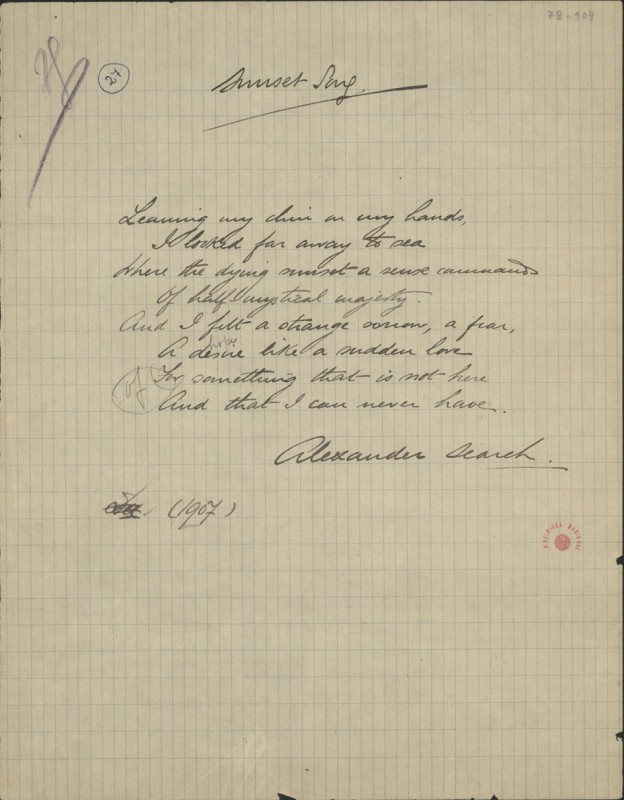 78-104
27
Sunset Song.
Leaning my chin on my hands,
I looked far away to sea
Where the dying sunset a sense commands
Of half mystical majesty.
And I felt a strange sorrow, a fear,
A desire like a sudden love
of For something that is not here
And that I can never have.
Alexander Search.
(1907)
BIBLIOTECA NACIONAL